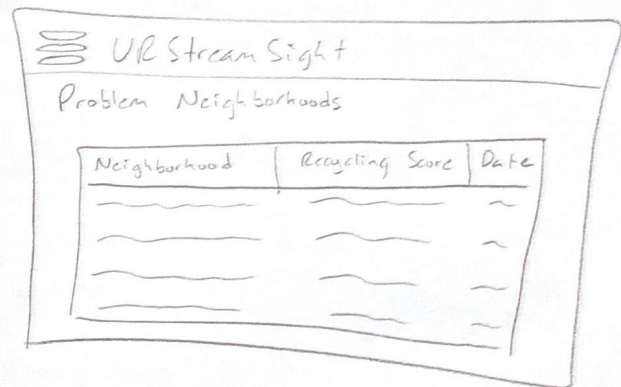 UR Stream Sight
Problem Neighborhoods
Neighborhood Recycling Score Date